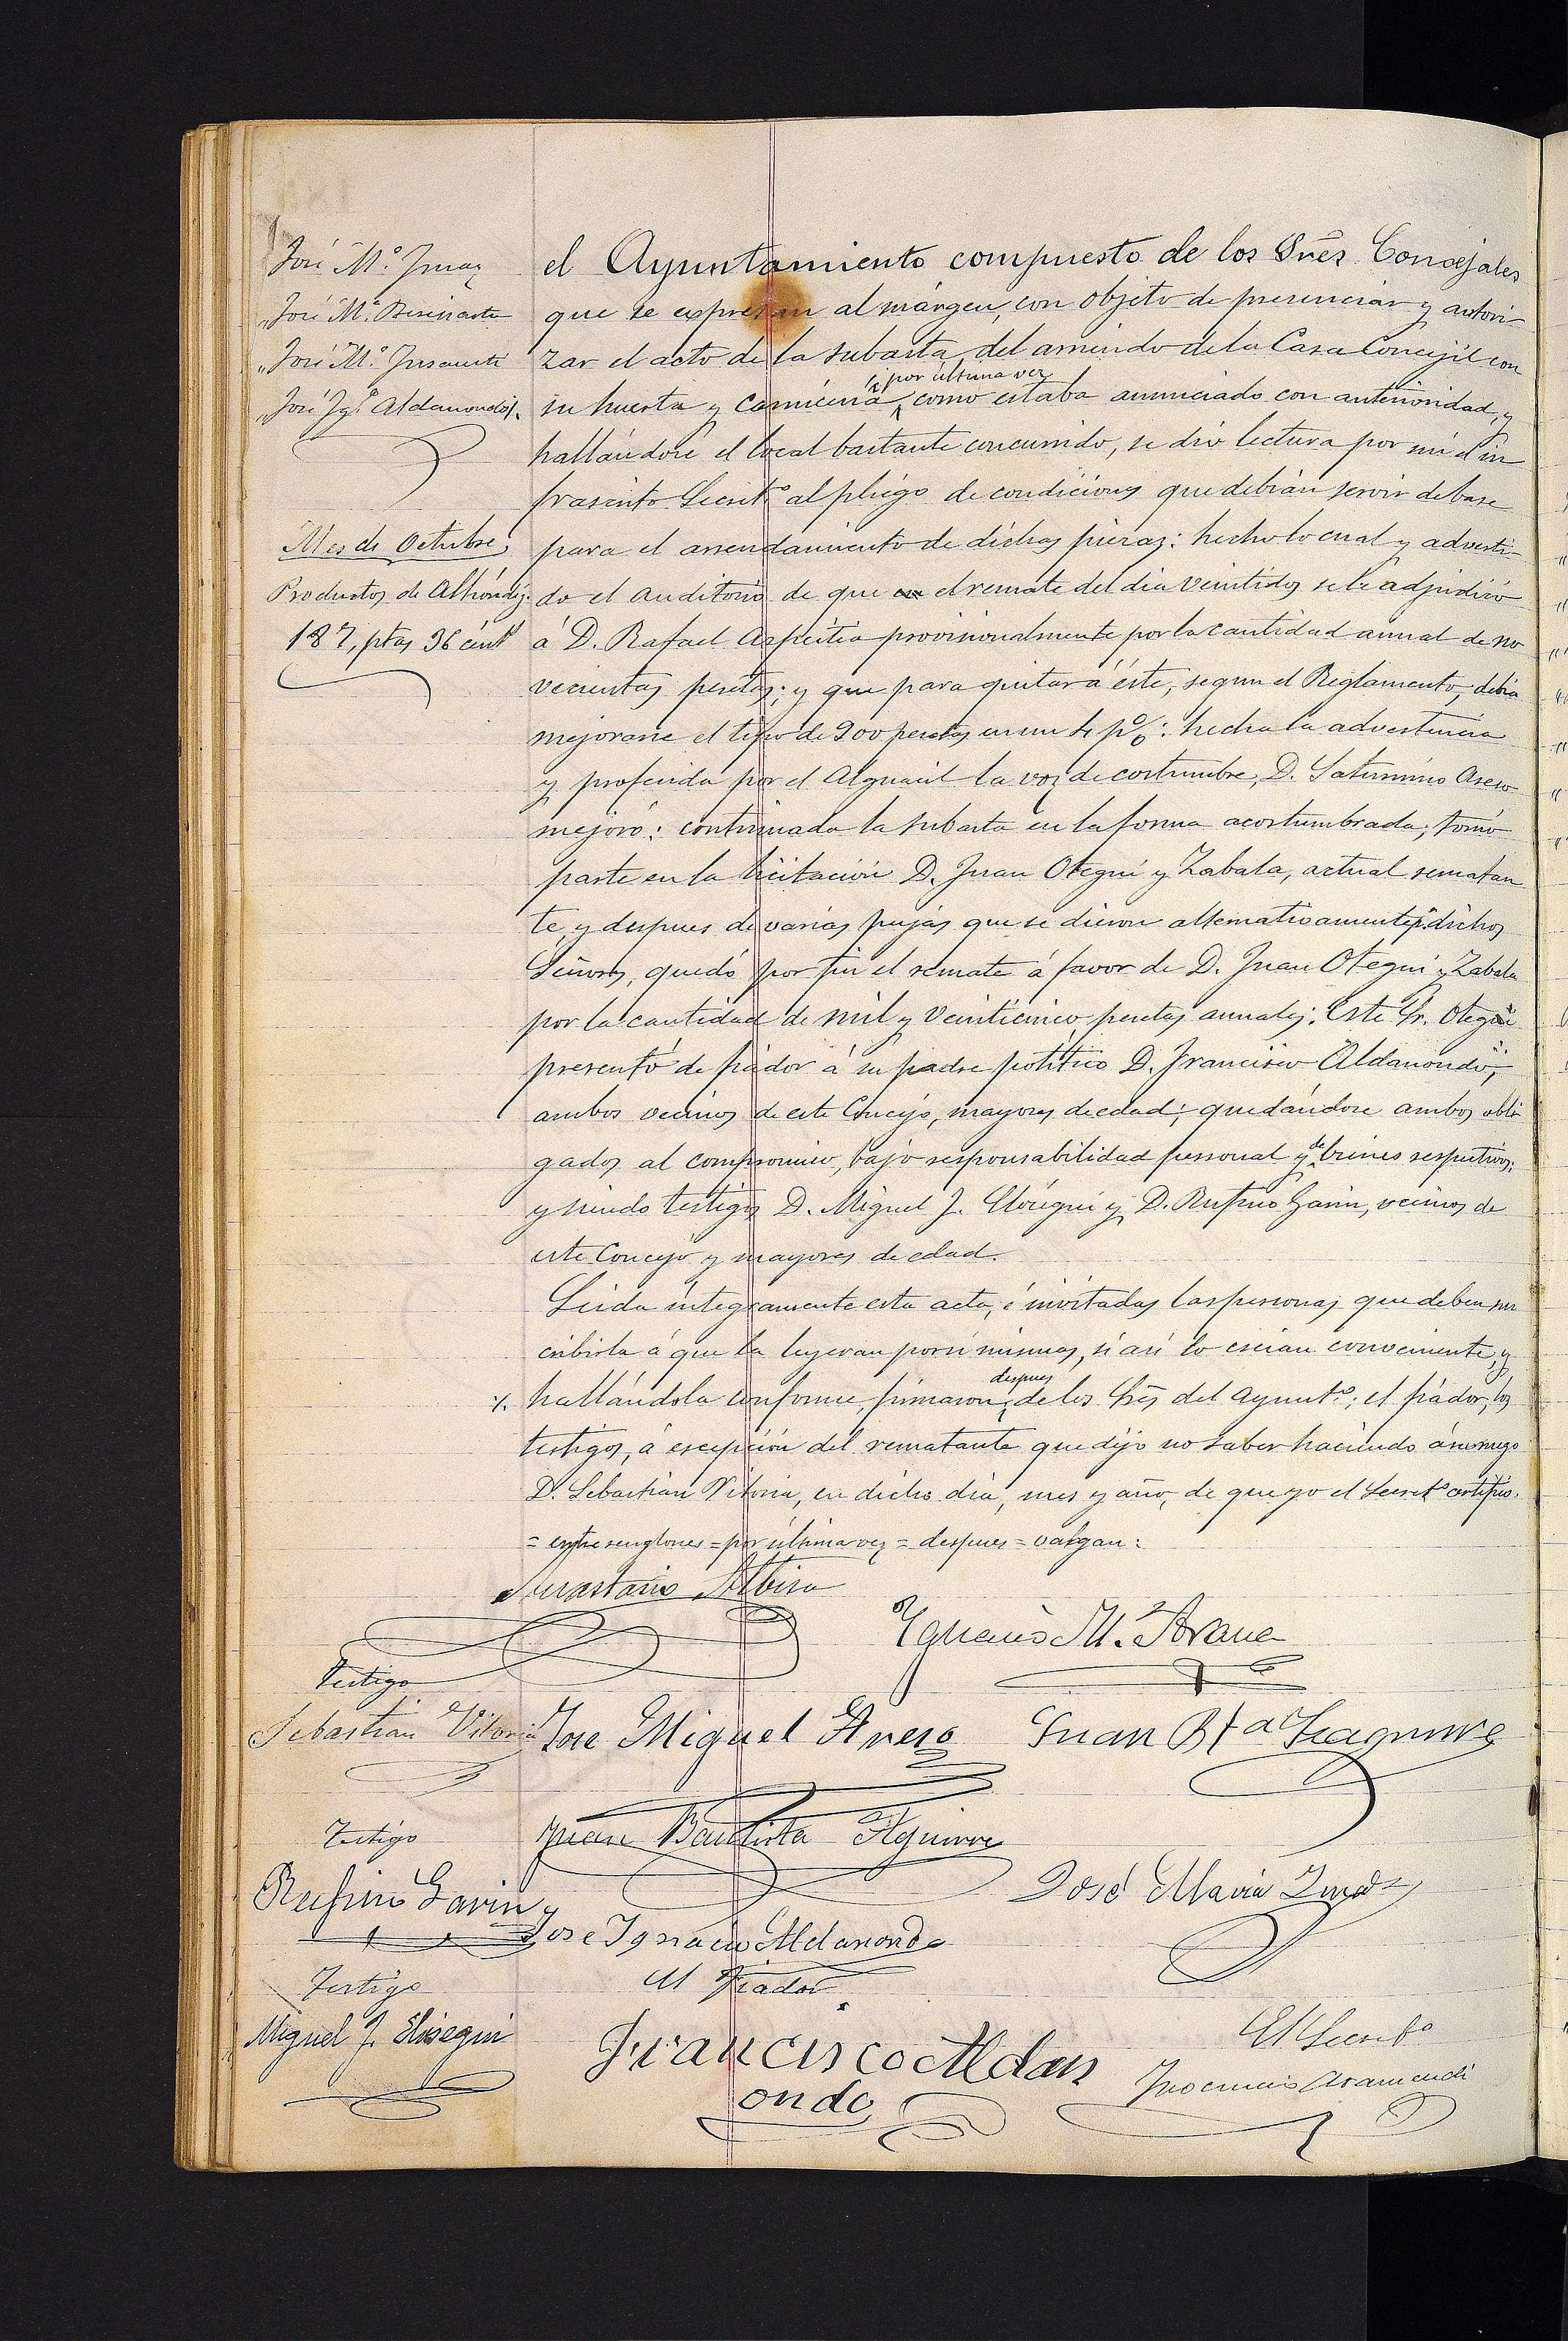 José M.ª Imaz
„José M.ª Berinarte
„José M.ª Insausti
„José Ig.º Aldanondo
Mes de Octubre
Productos de Alhóndig.
187, ptas 36 cént.s
el Ayuntamiento compuesto de los Sres. Concejales
que se expresan al márgen, con objeto de presenciar y autori-
zar el acto de la subasta, del arriendo de la Casa Concejil con
su huerta y carnicería, por última vez, como estaba anunciado con anterioridad, y
hallándose el local bastante concurrido, se dió lectura por mí el in
frascrito Secret.º al pliego de condiciones que debían servir de base
para el arrendamiento de dichas piezas: hecho lo cual y adverti-
do el auditorio de que el remate del dia veintidos se le adjudicó
á D. Rafael Azpeitia provisionalmente por la cantidad anual de no
vecientas pesetas; y que para quitar á éste, segun el Reglamento, debia
mejorarse el tipo de 900 pesetas en un 4 p%: hecha la advertencia
y proferida por el Alguacil la voz de costumbre, D. Saturnino Aseso
mejoró: continuada la subasta en la forma acostumbrada, tomó
parte en la licitación D. Juan Otegui y Zabala, actual rematan
te, y despues de varias pujas que se dieron alternativamente p.r dichos
Señores, quedó por fin el remate á favor de D. Juan Otegui y Zabala
por la cantidad de mil y veinticinco pesetas anuales: Este Sr. Otegui
presentó de fiador á su padre político D. Francisco Aldanondo;
ambos vecinos de este Concejo, mayores de edad; quedándose ambos obli
gados al compromiso, bajo responsabilidad personal y de bienes respectivos:
y siendo testigos D. Miguel J. Elósegui y D. Rufino Garin, vecinos de
este Concejo y mayores de edad.
Leida íntegramente esta acta, é invitadas las personas que deben sus
cribirla á que la leyeran por sí mismas, si así lo creian conveniente, y
hallándola conforme, firmaron, despues de los Sres del Ayunt.º; el fiador, los
testigos, á escepción del rematante que dijo no saber haciendo á su ruego
D. Sebastian Vitoria, en dicho dia, mes y año, de que yo el Secret.º certifico.
= entre renglones = por última vez = despues = valgan:
Anastasio Albisu
Ygnacio M.ª Arana
Testigo
Sebastian Vitoria
Jose Miguel Areso
Juan Bta Yraguirre
Testigo
Juan Bautista Aguirre
Rufino Garin y
José Maria Imaz
Jose Ignacio Aldanondo
Testigo
El Fiador
Miguel J. Elósegui
Francisco Aldan
ondo
El Secret.º
Inocencio Aramendi